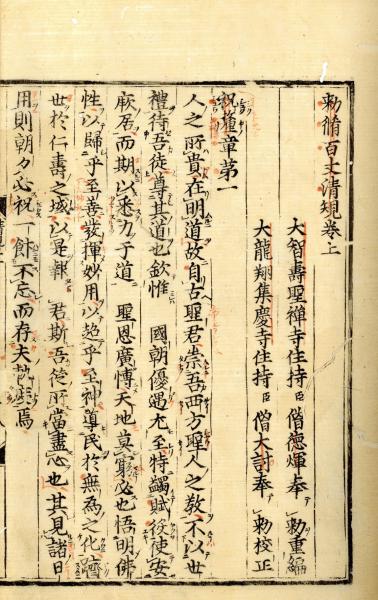 勅脩百丈清規卷上
大智壽聖禪寺住持臣僧德煇奉 勅重編
大龍翔集慶寺住持臣僧大訢奉 勅校正
祝釐章第一
人之所貴在明道故自古聖君崇吾西方聖人之教不以世
禮待吾徒尊其道也欽惟 國朝優遇尤至特蠲賦役使安
厥居而期以悉力于道 聖恩廣博天地莫窮必也悟明佛
性以歸乎至善發揮妙用以超乎至神導民於無為之化濟
世於仁壽之域以是報 君斯吾徒所當盡心也其見諸日
用則朝夕必祝一飯不忘而存夫